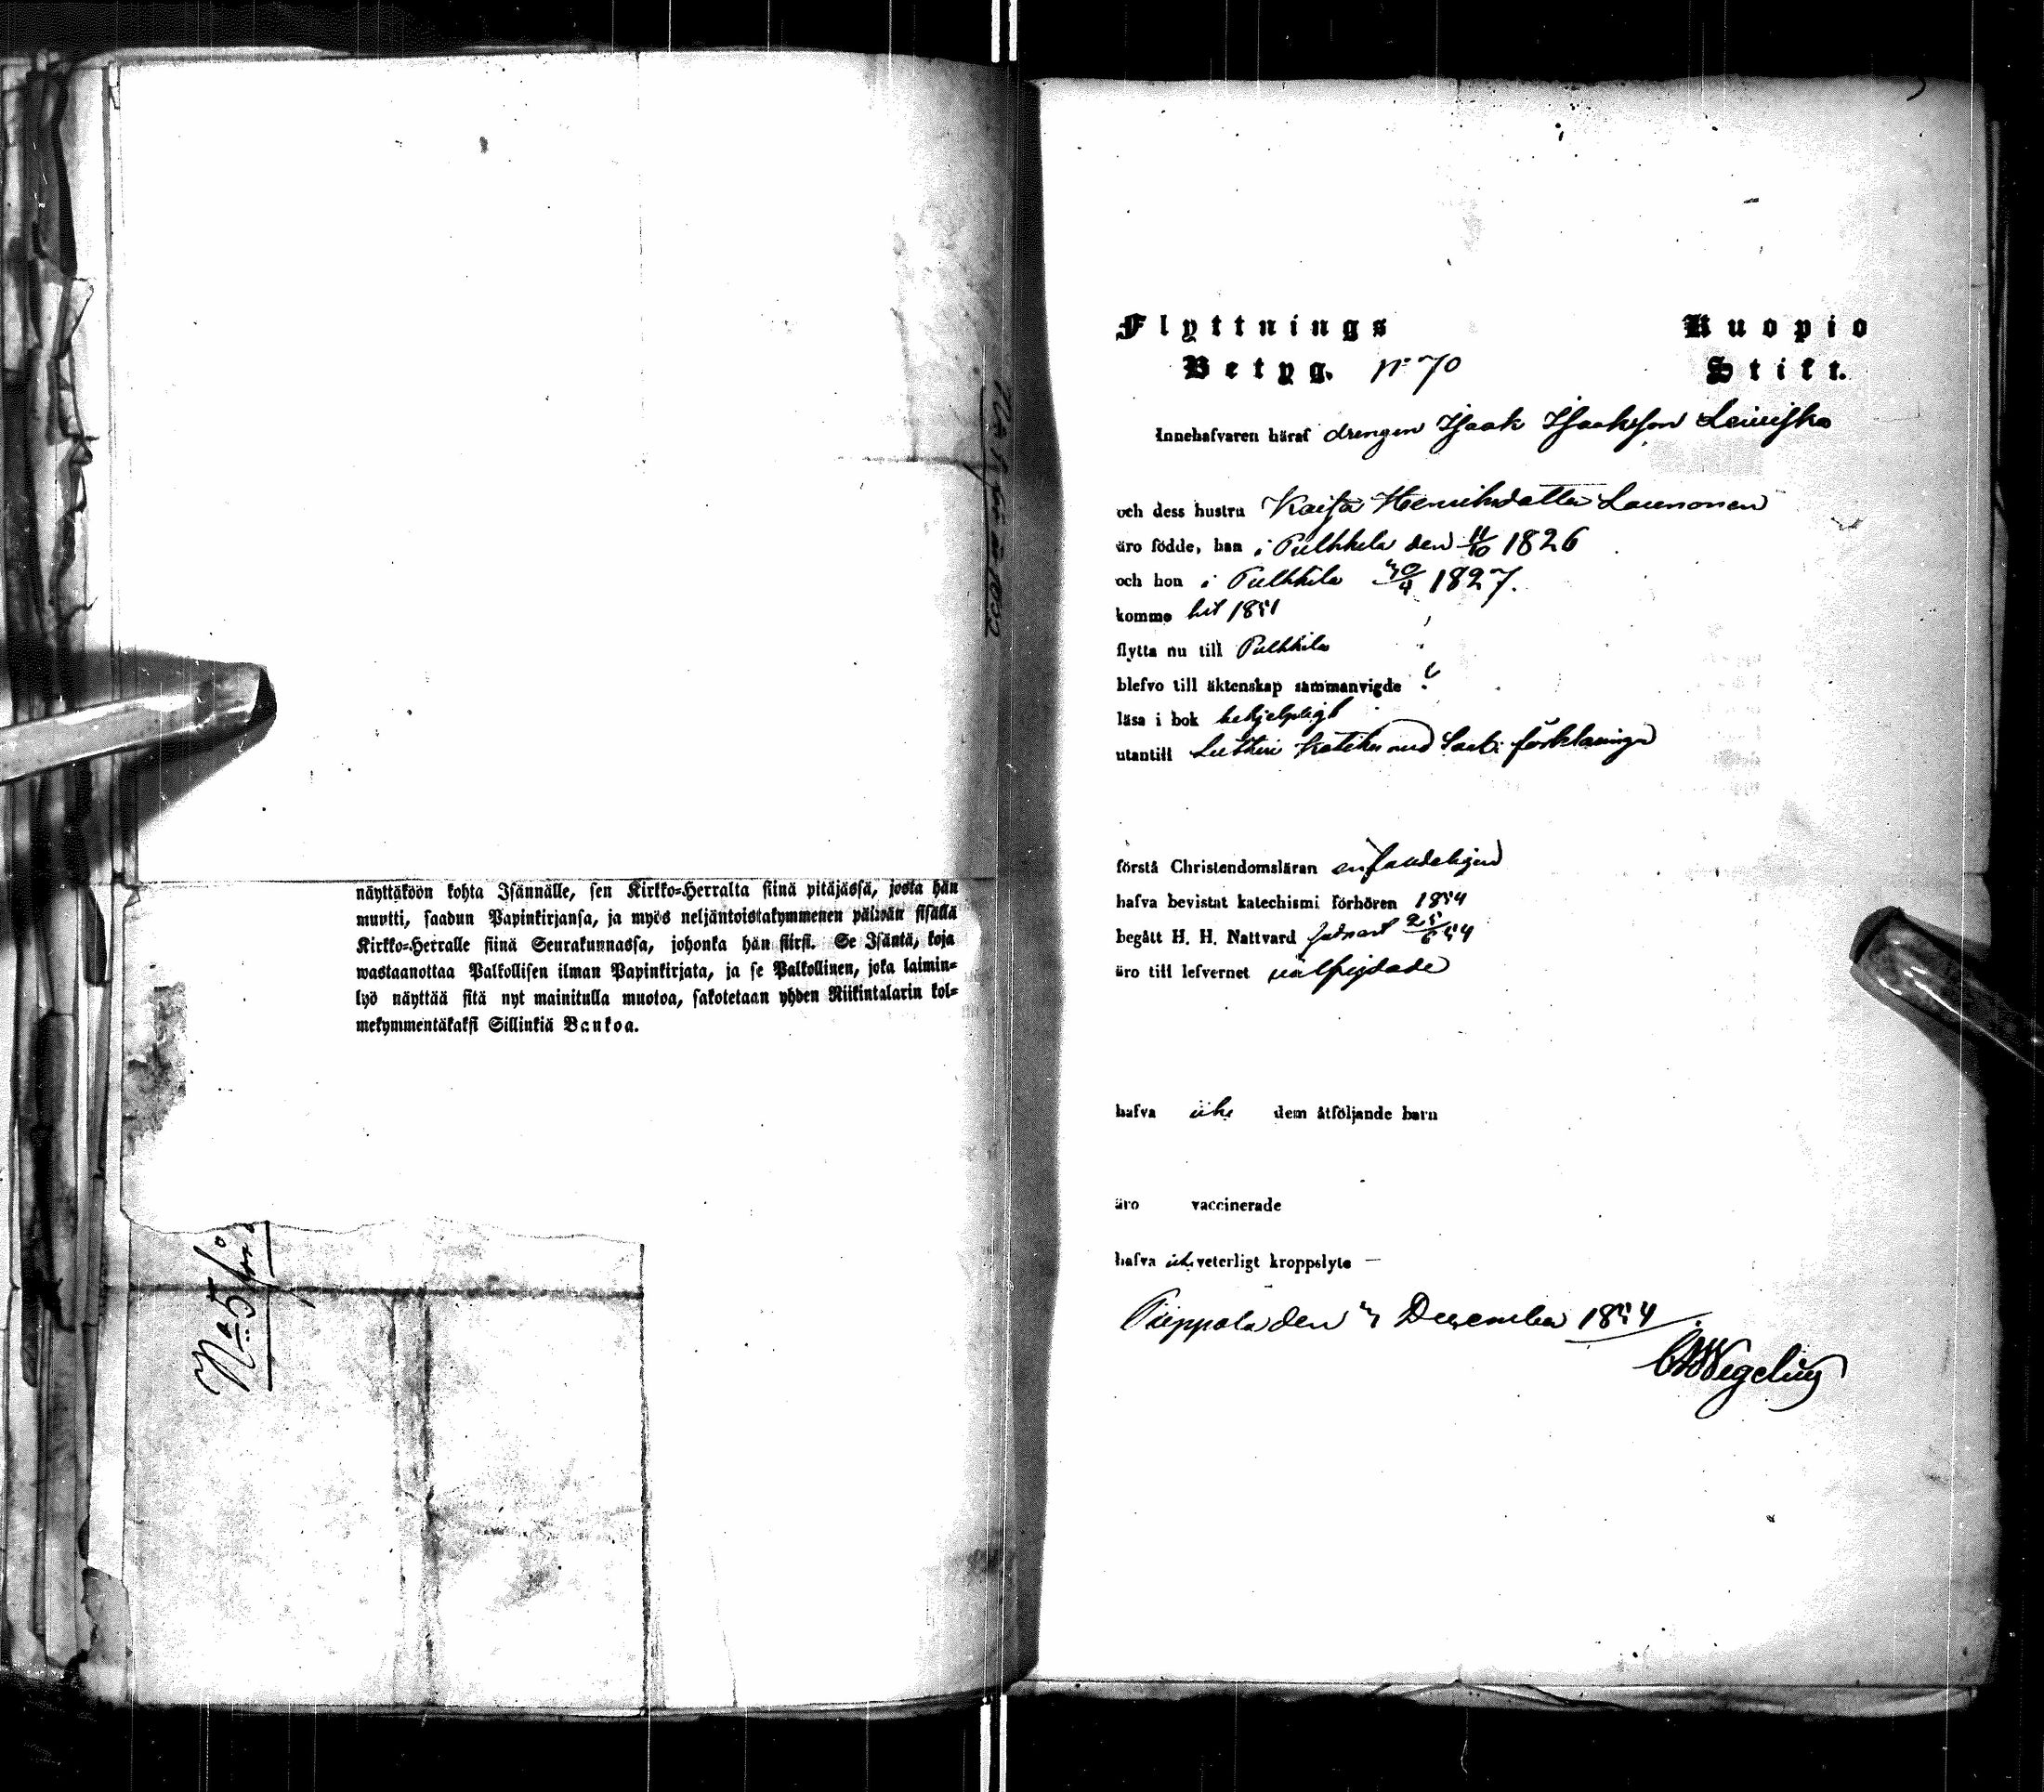 näyttäköön kohta Isännälle, sen Kirkko-Herralta siinä pitäjässä, josta hän
muutti, saadun Papinkirjansa, ja myös neljäntoistakymmenen päiwän sisällä
Kirkko-Herralle siinä Seurakunnassa, johonka hän siirsi. Se Isäntä, koja
wastaanottaa Palkollisen ilman Papinkirjata, ja se Palkollinen, joka laimin-
lyö näyttää sitä nyt mainitulla muotoa, sakotetaan yhden Riikintalarin kol-
mekymmentäkaksi Sillinkiä Bankoa.
No 5 för
Flyttnings Kuopio
Betyg. No 70 Stift.
Innehafvaren häraf drengen Isaak Isaaksson Leiviska
och dess hustru Kaisa Henriksdatter Launonen
äro födde, han i Pulkkila den 11/10 1826
och hon i Pulkkila 30/4 1827.
komme hit 1851
flytta nu till Pulkkila
blefvo till äktenskap sammanvigde
läsa i bok behjelpligt
utantill Lutheri kateches med förklaringen
förstå Christendomsläran enfaldeligen
hafva bevistat katechismi förhören 1854
begått H. H. Nattvard sednast 25/6 54
äro till lefvernet välfrejdade
hafva icke dem åtföljande barn
äro vaccinerade
hafva icke veterligt kroppslyte —
Pieppola den December 1854
Wegelius